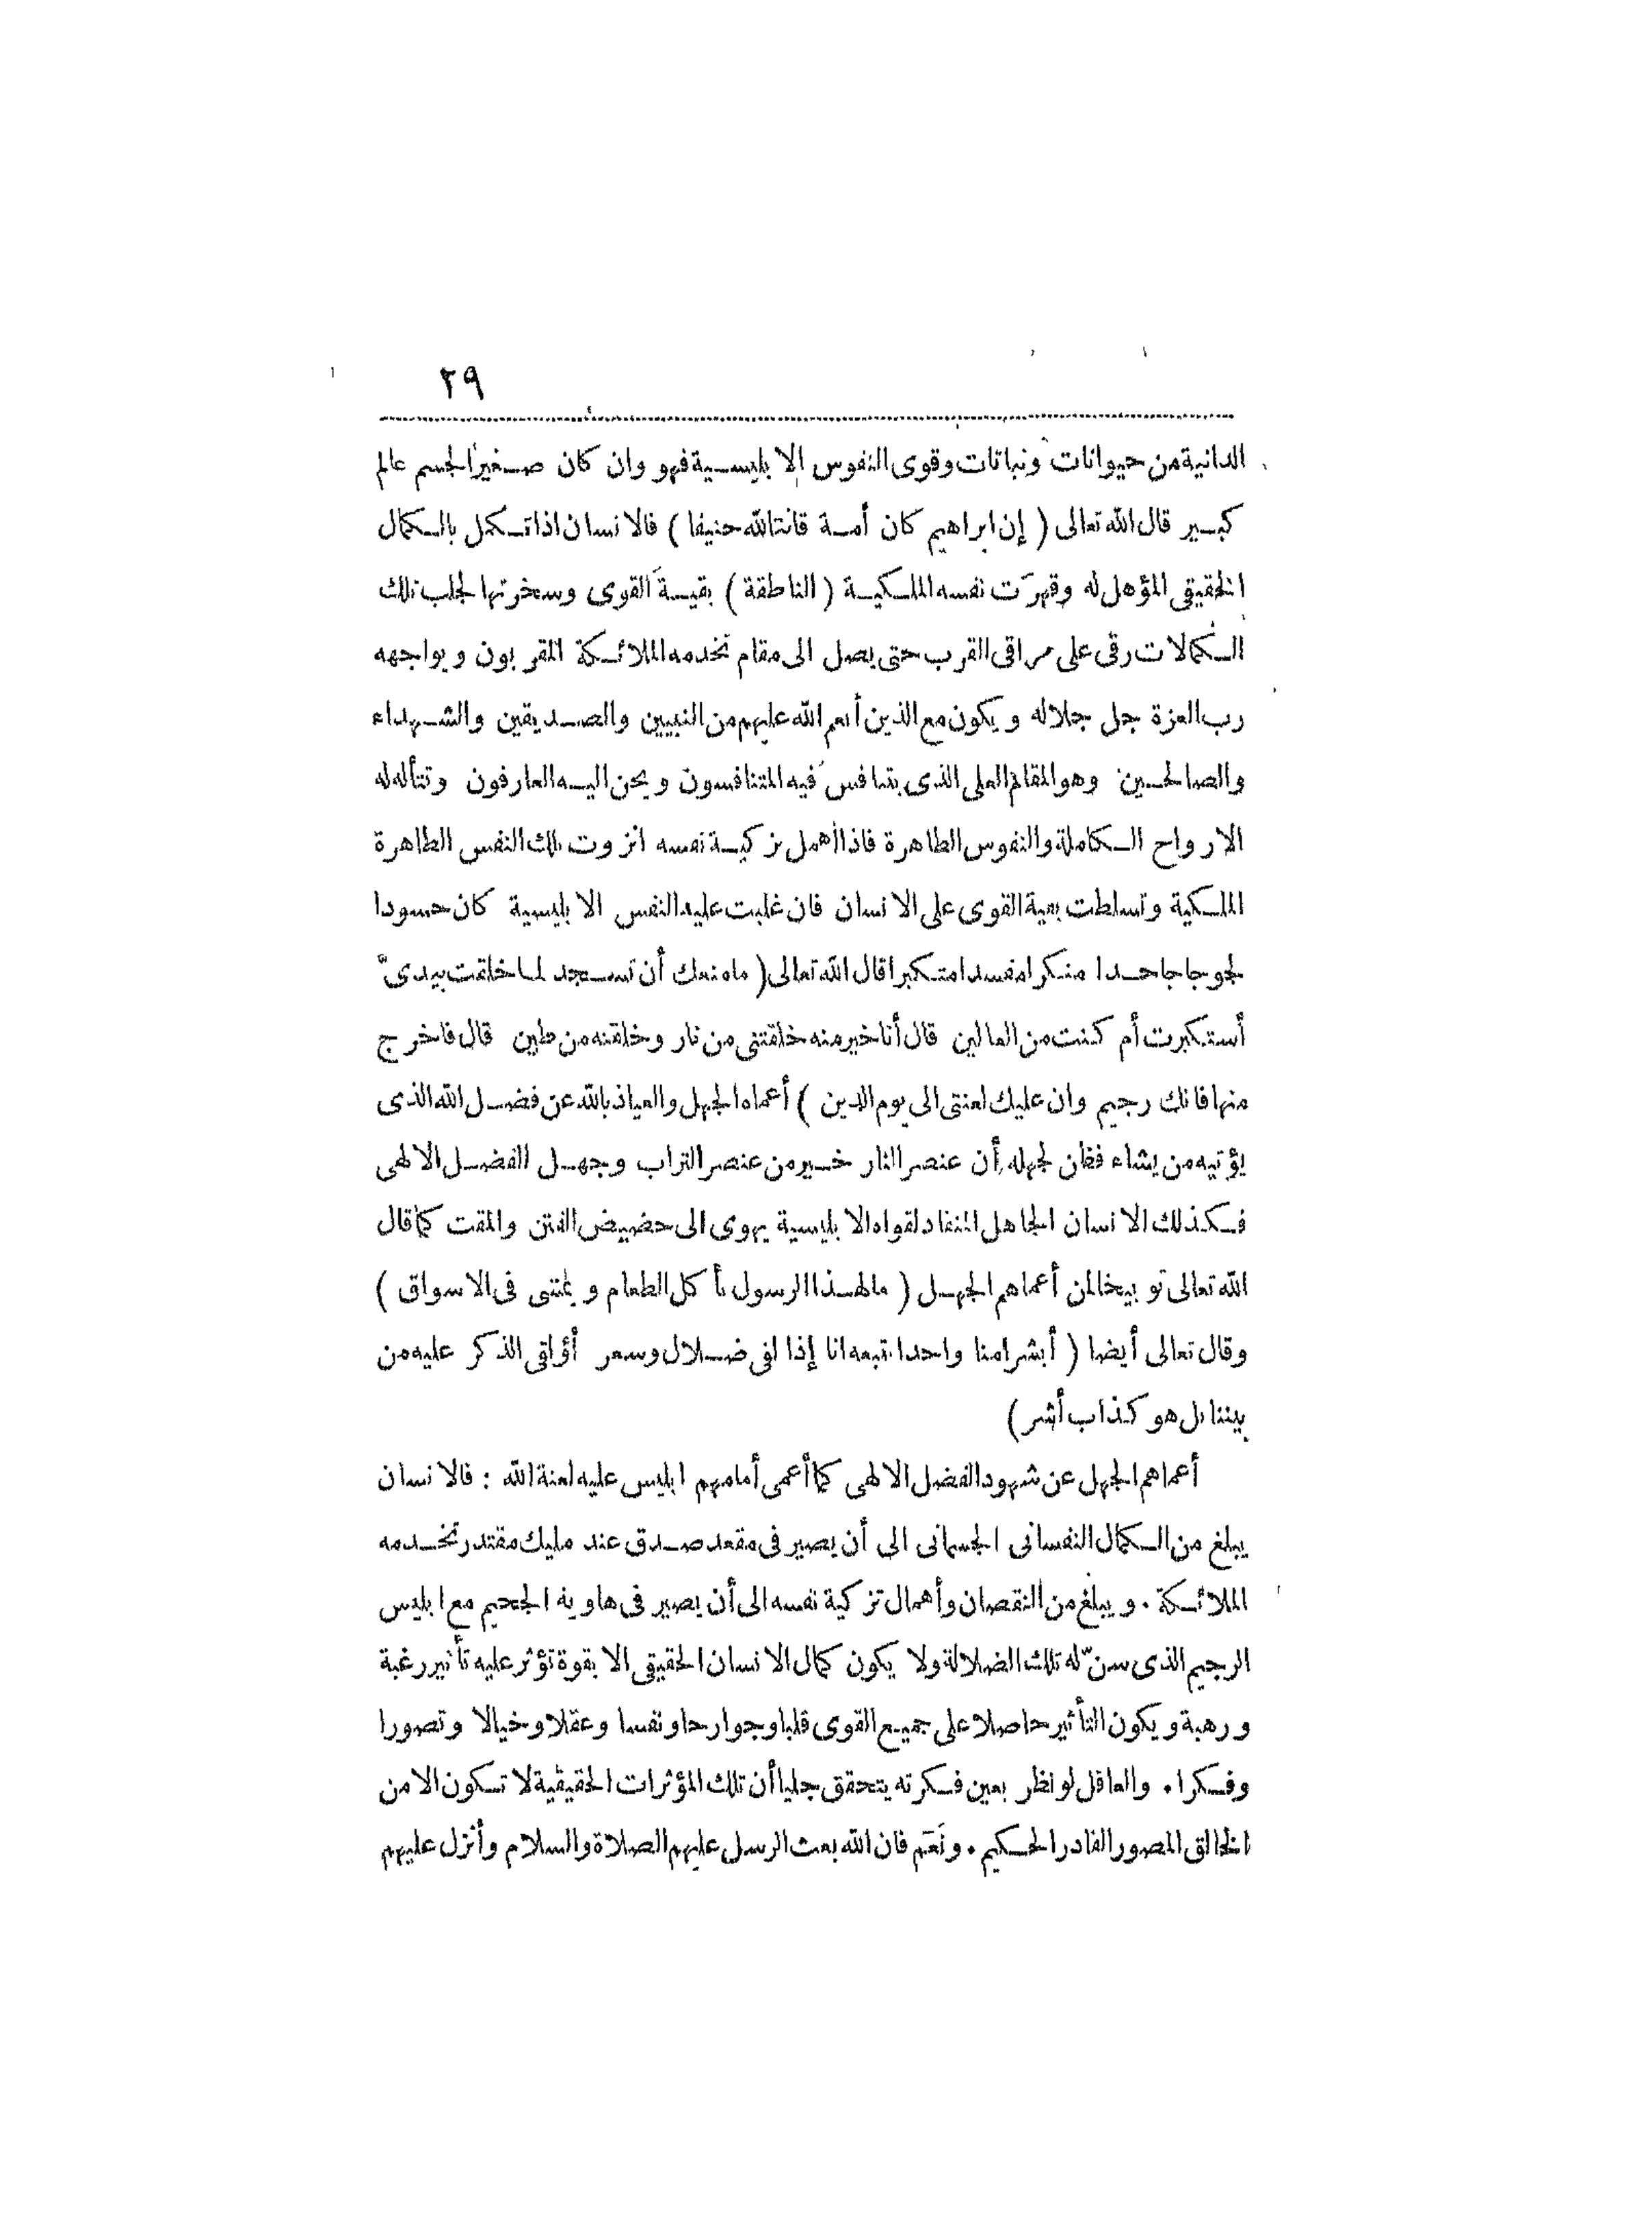 ٢٩
الدانية من حيوانات ونباتات وقوى النفوس الابليسية فهو وان كان صغير الجسم عالم
كبير قال الله تعالى ( إن ابراهيم كان أمة قانتا لله حنيفا ) فالانسان اذا تكمل بالكمال
الحقيقى المؤهل له وقهرت نفسه الملكية ( الناطقة ) بقية القوى وسخرتها لجلب تلك
الكمالات رقى على مراقى القرب حتى يصل الى مقام تخدمه الملائكة المقربون ويواجهه
رب العزة جل جلاله ويكون مع الذين أنعم الله عليهم من النبيين والصديقين والشهداء
والصالحين وهو المقام العلى الذى يتنافس فيه المتنافسون ويحن اليه العارفون وتتأله له
الارواح الكاملة والنفوس الطاهرة فاذا أهمل تزكية نفسه انزوت تلك النفس الطاهرة
الملكية وتسلطت بقية القوى على الانسان فان غلبت عليه النفس الابليسية كان حسودا
لجوجا جاحدا منكرا مفسدا متكبرا قال الله تعالى ( ما منعك أن تسجد لما خلقت بيدىّ
أستكبرت أم كنت من العالين قال أنا خير منه خلقتنى من نار وخلقته من طين قال فاخرج
منها فانك رجيم وان عليك لعنتى الى يوم الدين ) أعماه الجهل والعياذ بالله عن فضل الله الذى
يؤتيه من يشاء فظن لجهله أن عنصر النار خير من عنصر التراب وجهل الفضل الالهى
فكذلك الانسان الجاهل المنقاد لقواه الابليسية يهوى الى حضيض الفتن والمقت كما قال
الله تعالى توبيخا لمن أعماهم الجهل ( مالهذا الرسول يأكل الطعام ويمشى فى الاسواق )
وقال تعالى أيضا ( أبشرا منا واحدا نتبعه انا إذا لفى ضلال وسعر أؤلقى الذكر عليه من
بيننا بل هو كذاب أشر)
أعماهم الجهل عن شهود الفضل الالهى كما أعمى أمامهم ابليس عليه لعنة الله : فالانسان
يبلغ من الكمال النفسانى الجسمانى الى أن يصير فى مقعد صدق عند مليك مقتدر تخدمه
الملائكة . ويبلغ من النقصان وأهمال تزكية نفسه الى أن يصير فى هاوية الجحيم مع ابليس
الرجيم الذى سنّ له تلك الضلالة ولا يكون كمال الانسان الحقيقى الا بقوة تؤثر عليه تأثير رغبة
ورهبة ويكون التأثير حاصلا على جميع القوى قلبا وجوارحا ونفسا وعقلا وخيالا وتصورا
وفكرا . والعاقل لو نظر بعين فكرته يتحقق جليا أن تلك المؤثرات الحقيقية لا تكون الا من
الخالق المصور القادر الحكيم . ونَعَم فان الله بعث الرسل عليهم الصلاة والسلام وأنزل عليهم